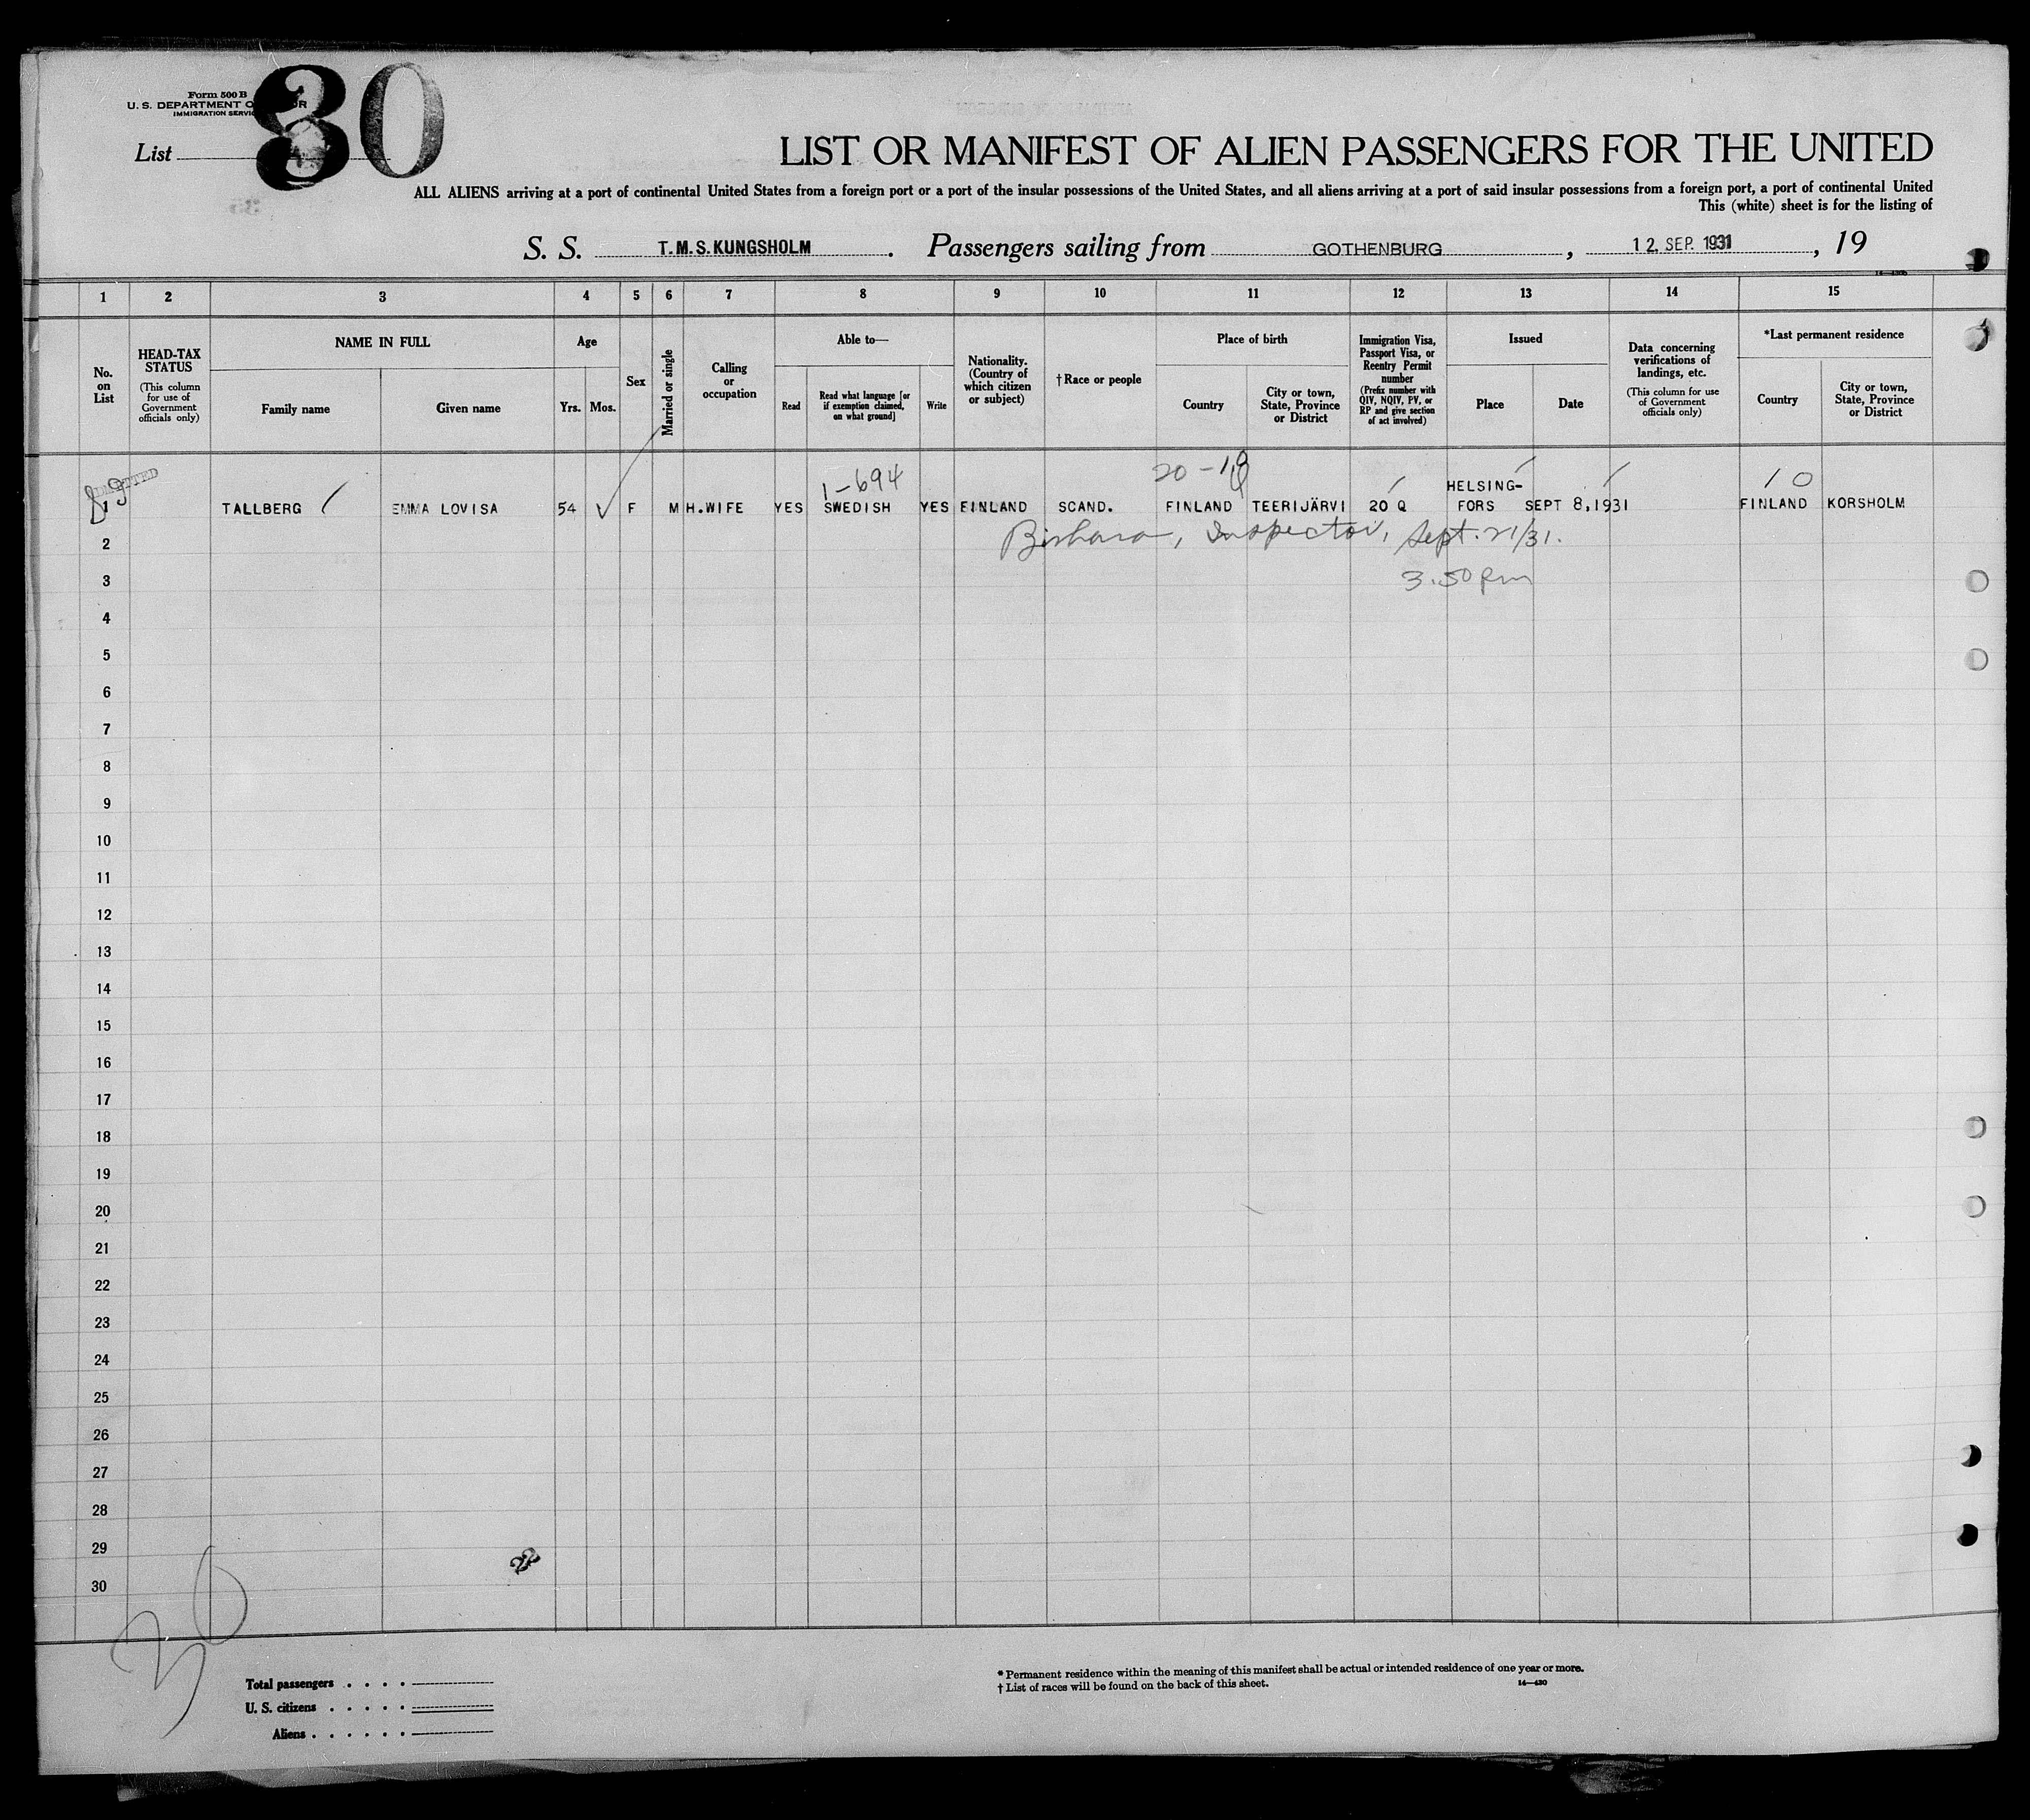 Form 500 B
U. S. DEPARTMENT OF LABOR
IMMIGRATION SERVICE
List 30
LIST OR MANIFEST OF ALIEN PASSENGERS FOR THE UNITED
ALL ALIENS arriving at a port of continental United States from a foreign port or a port of the insular possessions of the United States, and all aliens arriving at a port of said insular possessions from a foreign port, a port of continental United
This (white) sheet is for the listing of
S. S. T.M.S.KUNGSHOLM. Passengers sailing from GOTHENBURG, 12. SEP. 1931, 19
1 2 3 4 5 6 7 8 9 10 11 12 13 14 15
No. on List
HEAD-TAX STATUS (This column for use of Government officials only)
NAME IN FULL
Family name
Given name
Age
Yrs. Mos.
Sex
Married or single
Calling or occupation
Able to—
Read
Read what language [or if exemption claimed, on what ground]
Write
Nationality. (Country of which citizen or subject)
†Race or people
Place of birth
Country
City or town, State, Province or District
Immigration Visa, Passport Visa, or Reentry Permit number (Prefix number with QIV, NQIV, PV, or RP and give section of act involved)
Issued
Place
Date
Data concerning verifications of landings, etc. (This column for use of Government officials only)
*Last permanent residence
Country
City or town, State, Province or District
ADMITTED
1-694
20-19
10
1 TALLBERG EMMA LOVISA 54 F M H.WIFE YES SWEDISH YES FINLAND SCAND. FINLAND TEERIJÄRVI 20 Q HELSING-FORS SEPT 8,1931 FINLAND KORSHOLM
2 Inspector, Sept. 21/31.
3 3.50 pm
4
5
6
7
8
9
10
11
12
13
14
15
16
17
18
19
20
21
22
23
24
25
26
27
28
29
30
30
Total passengers
U. S. citizens
Aliens
* Permanent residence within the meaning of this manifest shall be actual or intended residence of one year or more.
† List of races will be found on the back of this sheet.
14—430